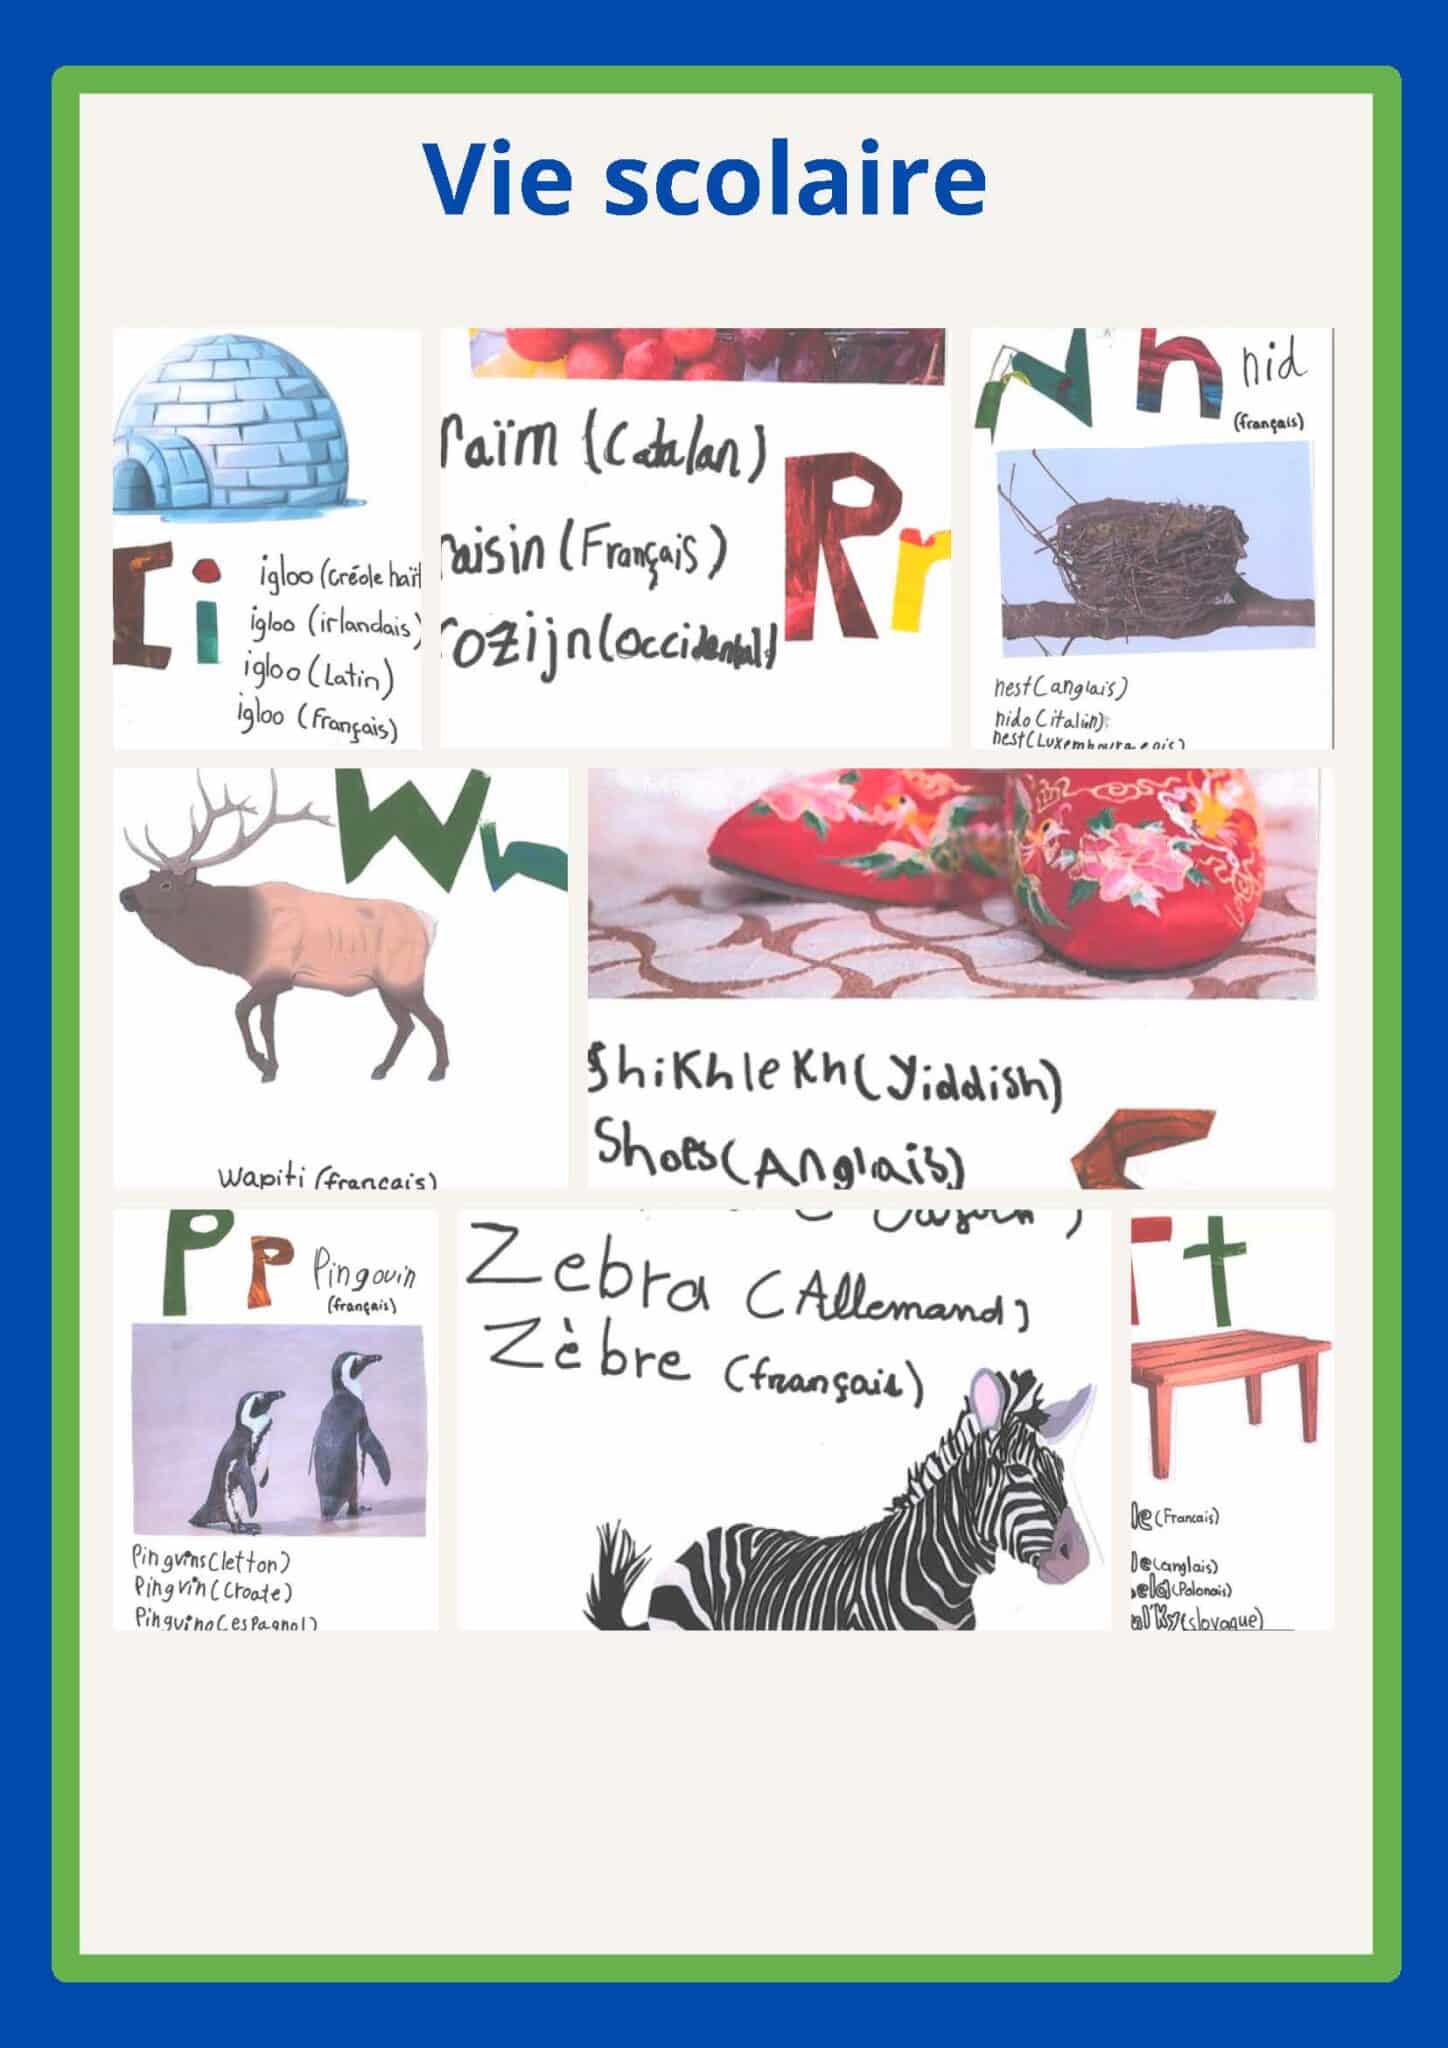 Vie scolaire
I i
igloo (Créole haït
igloo (irlandais)
igloo (Latin)
igloo (Français)
raïm (Catalan)
raisin (Français)
rozijn (occidental)
R r
N n nid
(français)
nest (anglais)
nido (italien)
nest (Luxembourgeois)
W
wapiti (français)
Shikhlekh (Yiddish)
Shoes (Anglais)
P p Pingouin
(français)
Pingvins (letton)
Pingvin (Croate)
Pinguino (espagnol)
Zebra (Allemand)
Zèbre (français)
t
le (Francais)
le (anglais)
ela (Polonais)
(slovaque)